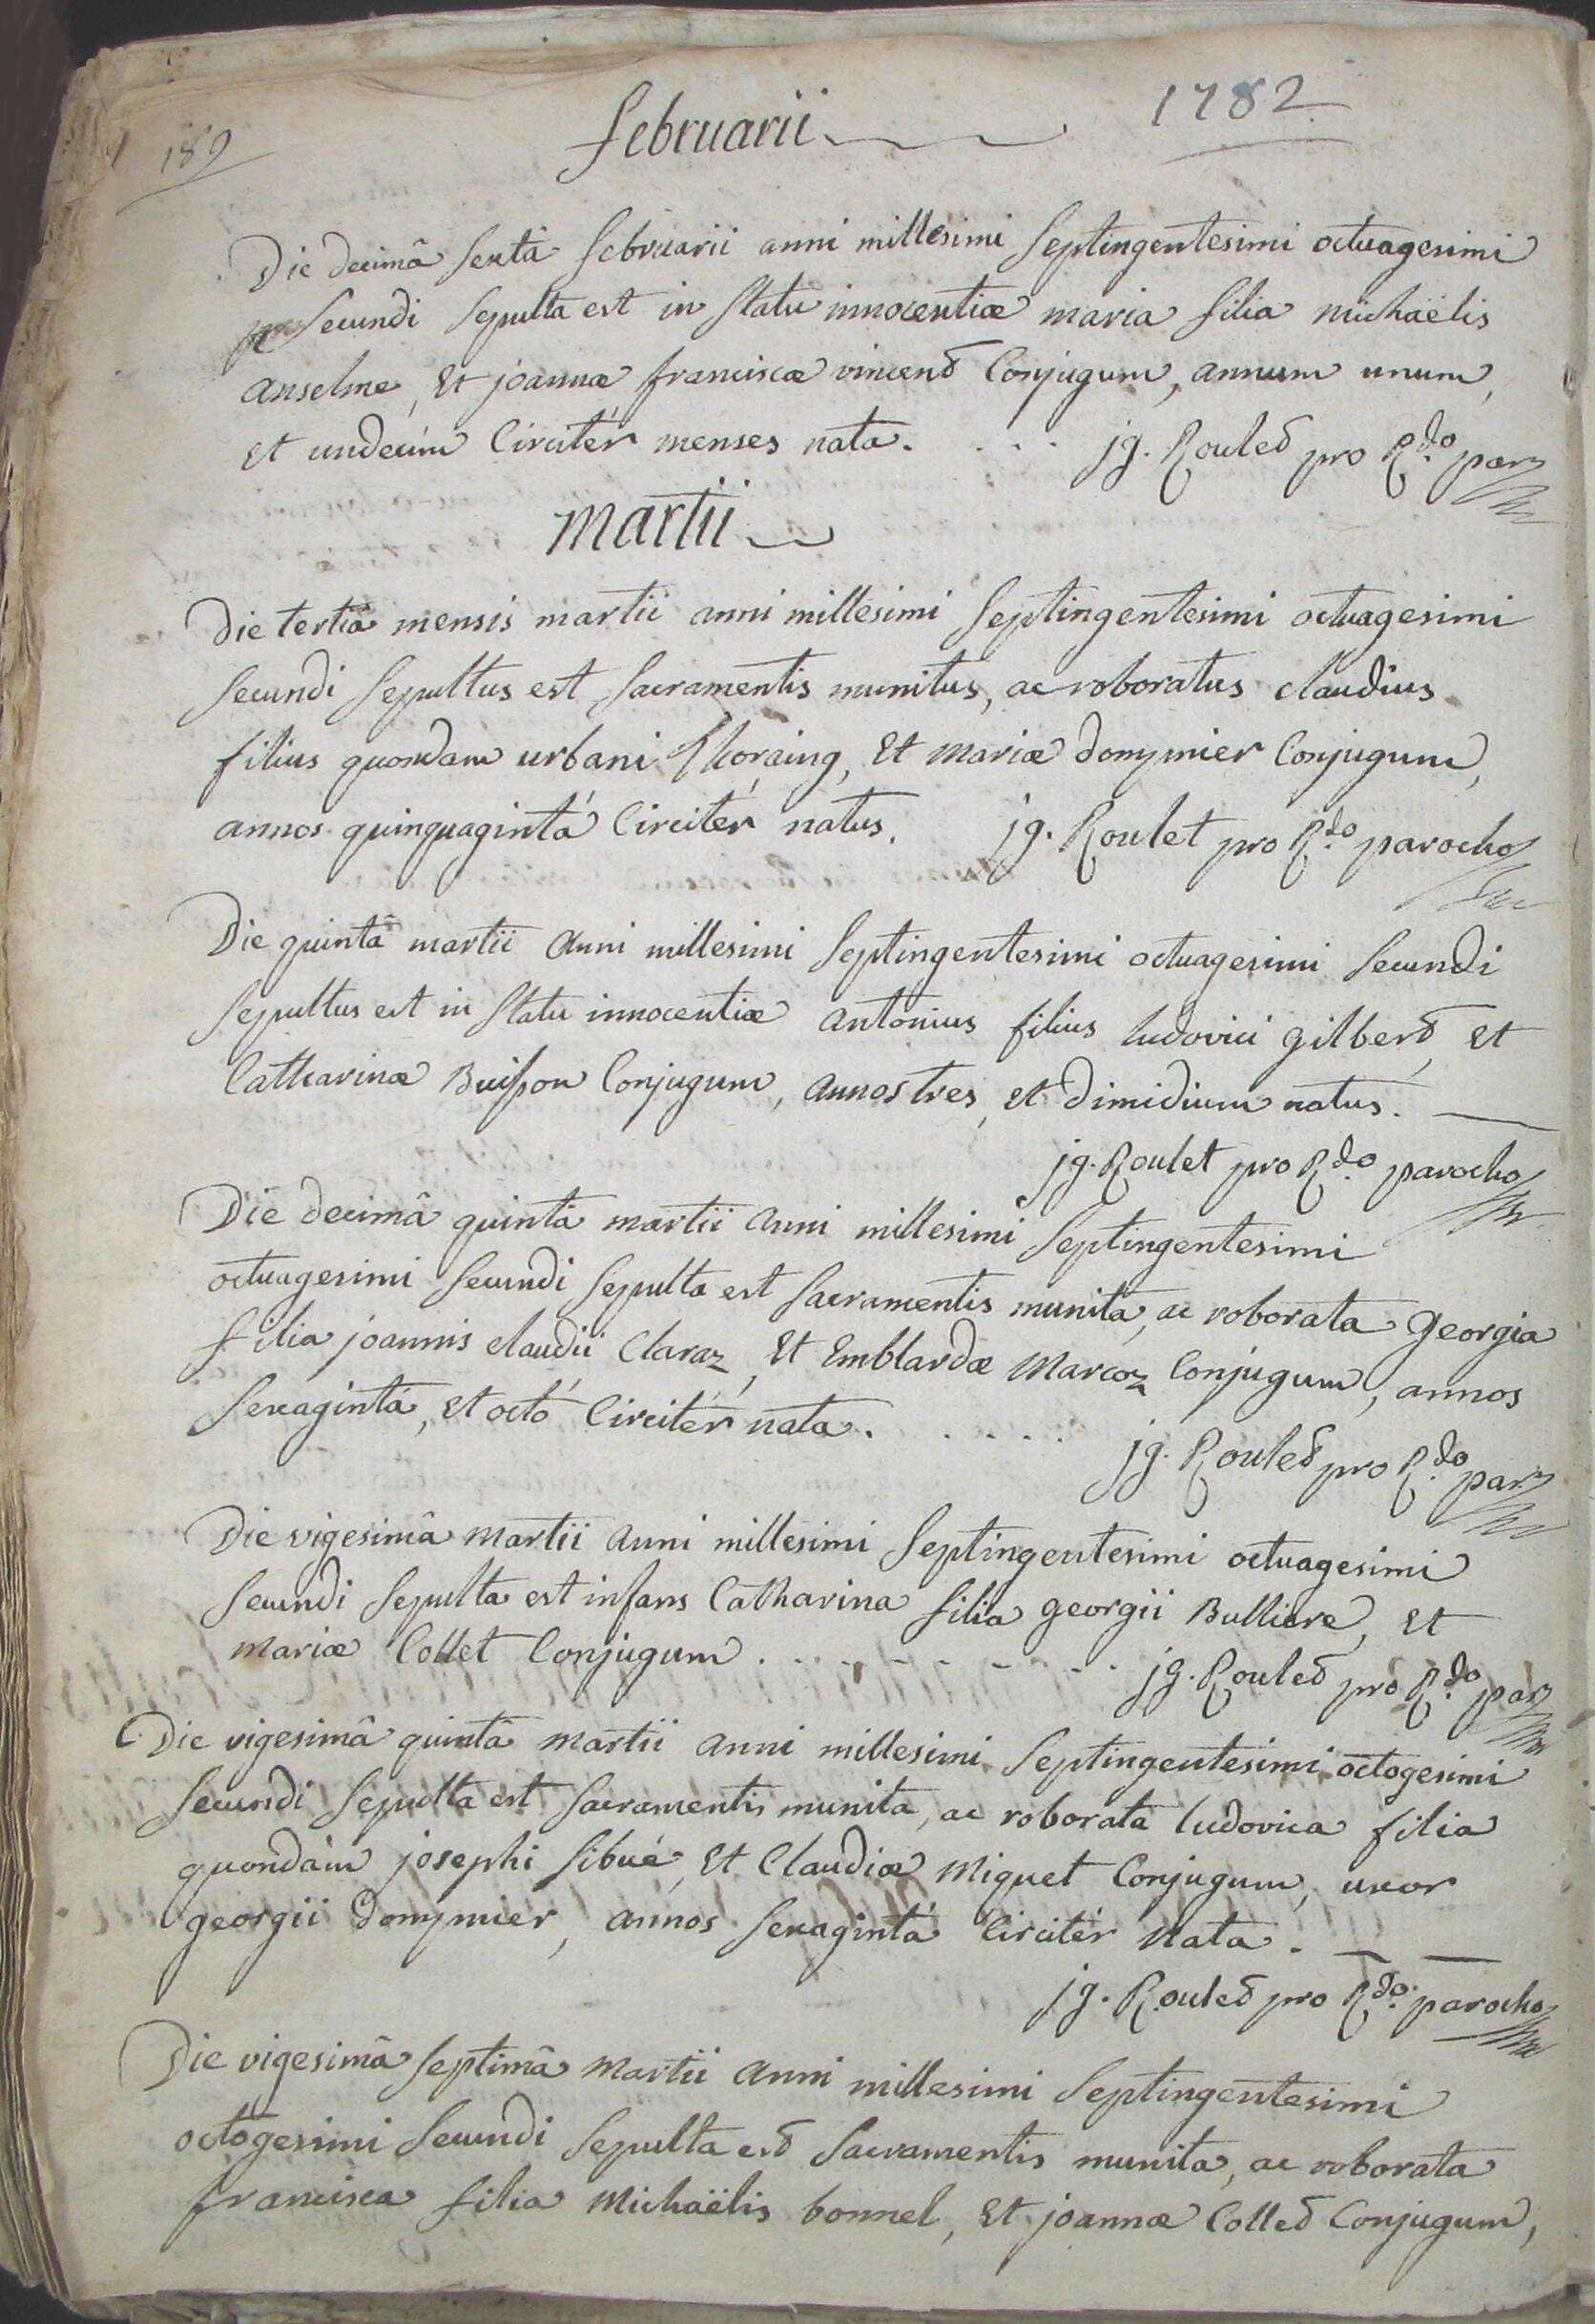 189
februarii
1782
Die decimâ sextâ februarii anni millesimi septingentesimi octuagesimi
secundi sepulta est in statu innocentiæ maria filia michaëlis
anselme, et joannæ franciscæ vincend Conjugum, annum unum,
et undecim Circitér menses nata. . . . jg. Rouled pro Rdo par
martii
Die tertiâ mensis martii anni millesimi septingentesimi octuagesimi
secundi sepultus est sacramentis munitus, ac roboratus claudius
filius quondam urbani Thoraing, et mariæ dompmier Conjugum,
annos quinquagintá Circitér natus. jg. Roulet pro Rdo parocho
Die quintâ martii anni millesimi septingentesimi octuagesimi secundi
sepultus est in statu innocentiæ antonius filius ludovici gilberd, et
Catharinæ Buisson Conjugum, annos tres, et dimidium natus.
jg. Roulet pro Rdo parocho
Die decimâ quintâ martii anni millesimi septingentesimi
octuagesimi secundi sepulta est sacramentis munita, ac roborata georgia
filia joannis claudii Claraz, et Emblardæ Marcoz Conjugum, annos
sexagintá, et octó Circitér nata. . . . . . jg. Rouled pro Rdo par
Die vigesimâ martii anni millesimi septingentesimi octuagesimi
secundi sepulta est infans Catharina filia georgii Bulliere, et
mariæ Collet Conjugum . . . . . . . . . jg. Rouled pro Rdo par
Die vigesimâ quintâ martii anni millesimi septingentesimi octogesimi
secundi sepulta est sacramentis munita, ac roborata ludovica filia
quondám josephi sibué, et Claudiæ Miquet Conjugum, uxor
georgii dompmier, annos sexagintá Circitér nata.
jg. Rouled pro Rdo parocho
Die vigesimâ septimâ martii anni millesimi septingentesimi
octogesimi secundi sepulta esd sacramentis munita, ac roborata
francisca filia Michaëlis bonnel, et joannæ Colled Conjugum,